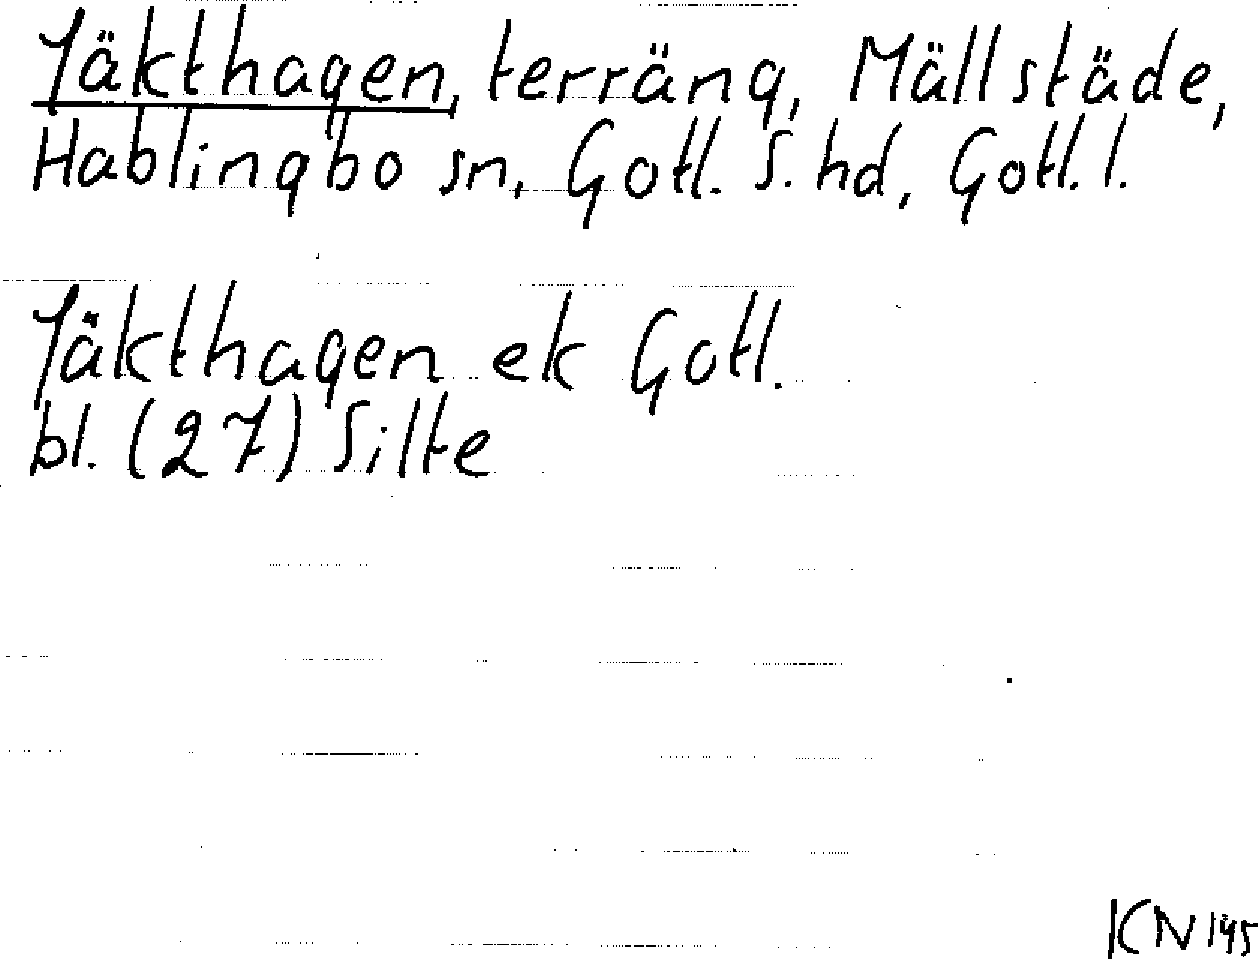 Jäkthagen, terräng, Mällstäde,
Hablingbo sn, Gotl. S. hd, Gotl. l.
Jäkthagen ek Gotl.
bl. (27) Silte
KN 1945